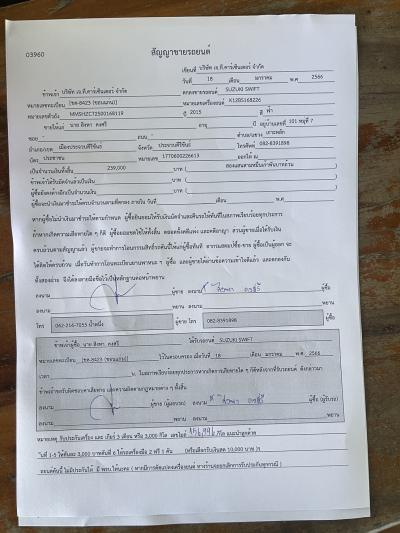 03960
สัญญาขายรถยนต์
เขียนที่ บริษัท เจ.ที.คาร์เซ็นเตอร์ จำกัด
วันที่ 18 เดือน มกราคม พ.ศ 2566
ข้าพเจ้า บริษัท เจ.ที.คาร์เซ็นเตอร์ จำกัด ตกลงขายรถยนต์ SUZUKI SWIFT
หมายเลขทะเบียน [ขล-8423 (ขอนแก่น)] หมายเลขเครื่องยนต์ K12B5168226
หมายเลขตัวถัง MMSHZC72S00168119 ปี 2015 สี ฟ้า
ขายให้แก่ นาย สิงหา คงศรี อายุ ปี อยู่บ้านเลขที่ 101 หมู่ที่ 7
ซอย - ถนน - ตำบล/แขวง เกาะพลัก
อำเภอ/เขต เมืองประจวบคีรีขันธ์ จังหวัด ประจวบคีรีขันธ์ โทรศัพท์ 082-8391898
บัตร ประชาชน หมายเลข 1770600226613 ออกให้ ณ
เป็นจำนวนเงินทั้งสิ้น 239,000 บาท ( สองแสนสามหมื่นเก้าพันบาทถ้วน )
ข้าพเจ้าได้รับมัดจำแล้วเป็นเงิน บาท ( )
ผู้ซื้อยังคงค้างอีกเป็นจำนวนเงิน บาท ( )
ผู้ซื้อจะนำเงินมาชำระให้ครบจำนวนตามที่ตกลง ภายใน วันที่ เดือน พ.ศ
หากผู้ซื้อไม่นำเงินมาชำระให้ตามกำหนด ผู้ซื้อยินยอมให้รับเงินมัดจำและคืนรถให้ทันทีในสภาพเรียบร้อยทุกประการ
ถ้าหากเกิดความเสียหายใด ๆ ก็ดี ผู้ซื้อยอมชดใช้ให้ทั้งสิ้น ยอมทั้งคดีแพ่ง และคดีอาญา ส่วนผู้ขายเมื่อได้รับเงิน
ครบถ้วนตามสัญญาแล้ว ผู้ขายจะทำการโอนกรรมสิทธิ์รถคันนี้ให้แก่ผู้ซื้อทันที
ทั้งสองฝ่าย จึงได้ลงลายมือชื่อไว้เป็นหลักฐานต่อหน้าพยาน
ลงนาม ผู้ขาย ลงนาม สิงหา คงศรี ผู้ซื้อ
ลงนาม พยาน ลงนาม พยาน
โทร 062-216-7055 ผู้ขาย โทร 082-8391898
ข้าพเจ้าผู้ซื้อ นาย สิงหา คงศรี ได้รับรถยนต์ SUZUKI SWIFT
หมายเลขทะเบียน [ขล-8423 (ขอนแก่น)] ไว้ในครอบครอง เมื่อวันที่ 18 เดือน มกราคม พ.ศ. 2566
เวลา น. ในสภาพเรียบร้อยทุกประการหากเกิดการเสียหายใด ๆ ก็ดีหลังจากที่รับรถยนต์ ดังกล่าวมา
ข้าพเจ้าจะรับผิดชอบค่าเสียหาย และความผิดตามกฎหมายต่าง ๆ ทั้งสิ้น
ลงนาม ผู้ขาย (ผู้มอบรถ) ลงนาม สิงหา คงศรี ผู้ซื้อ (ผู้รับรถ)
ลงนาม พยาน ลงนาม พยาน
หมายเหตุ รับประกันเครื่อง และ เกียร์ 3 เดือน หรือ 3,000 กิโล เลขไมล์ กิโล แนะนำลูกค้าต่อ